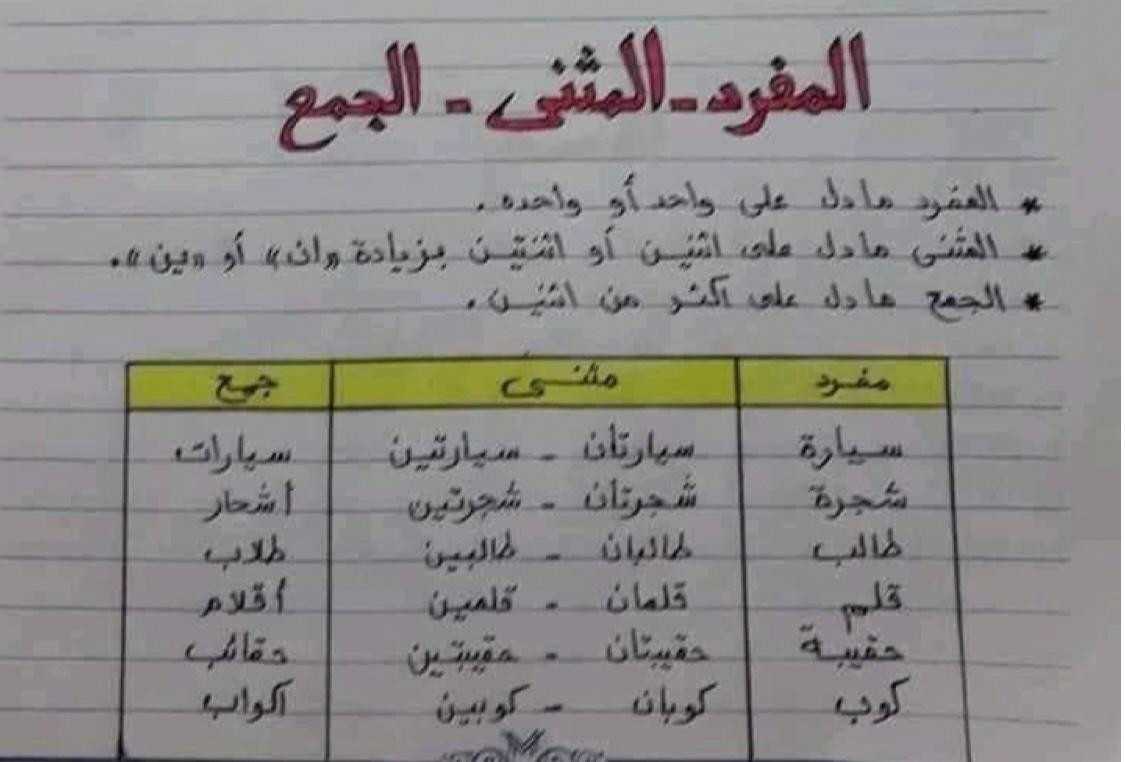 المفرد - المثنى - الجمع
* المفرد مادل على واحد أو واحده .
* المثنى مادل على اثنين أو اثنتين بزيادة «ان» أو «ين» .
* الجمع مادل على اكثر من اثنين .
مفرد مثنى جمع
سيارة سيارتان - سيارتين سيارات
شجرة شجرتان - شجرتين أشحار
طالب طالبان - طالبين طلاب
قلم قلمان - قلمين أقلام
حقيبة حقيبتان - حقيبتين حقائب
كوب كوبان - كوبين اكواب